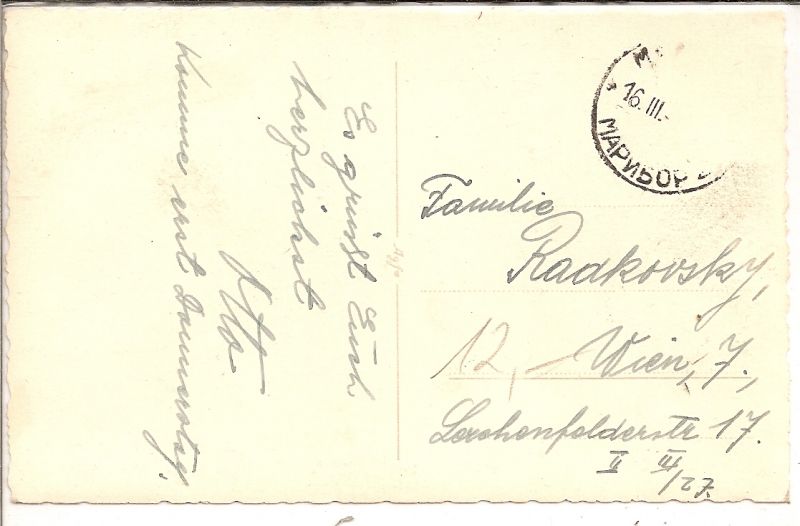 Es grüßt Euch
herzlichst
Otto.
Komme erst Donnerstag.
16. III.
МАРИБОР
Familie
Radkovsky,
12,- Wien, 7.,
Lerchenfelderstr 17.
II III/27.